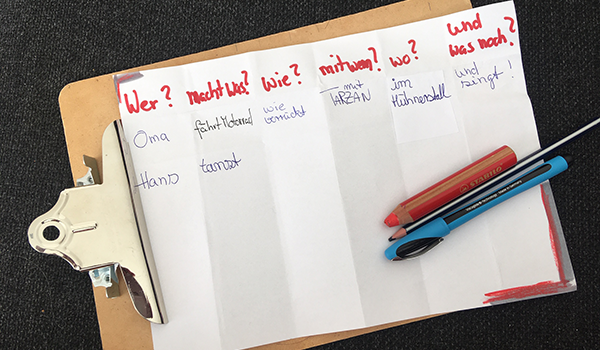 Wer? macht was? Wie? mit wem? wo? und was noch?
Oma fährt Motorrad wie verrückt mit TARZAN im Hühnerstall und singt!
Hans tanzt
STABILO